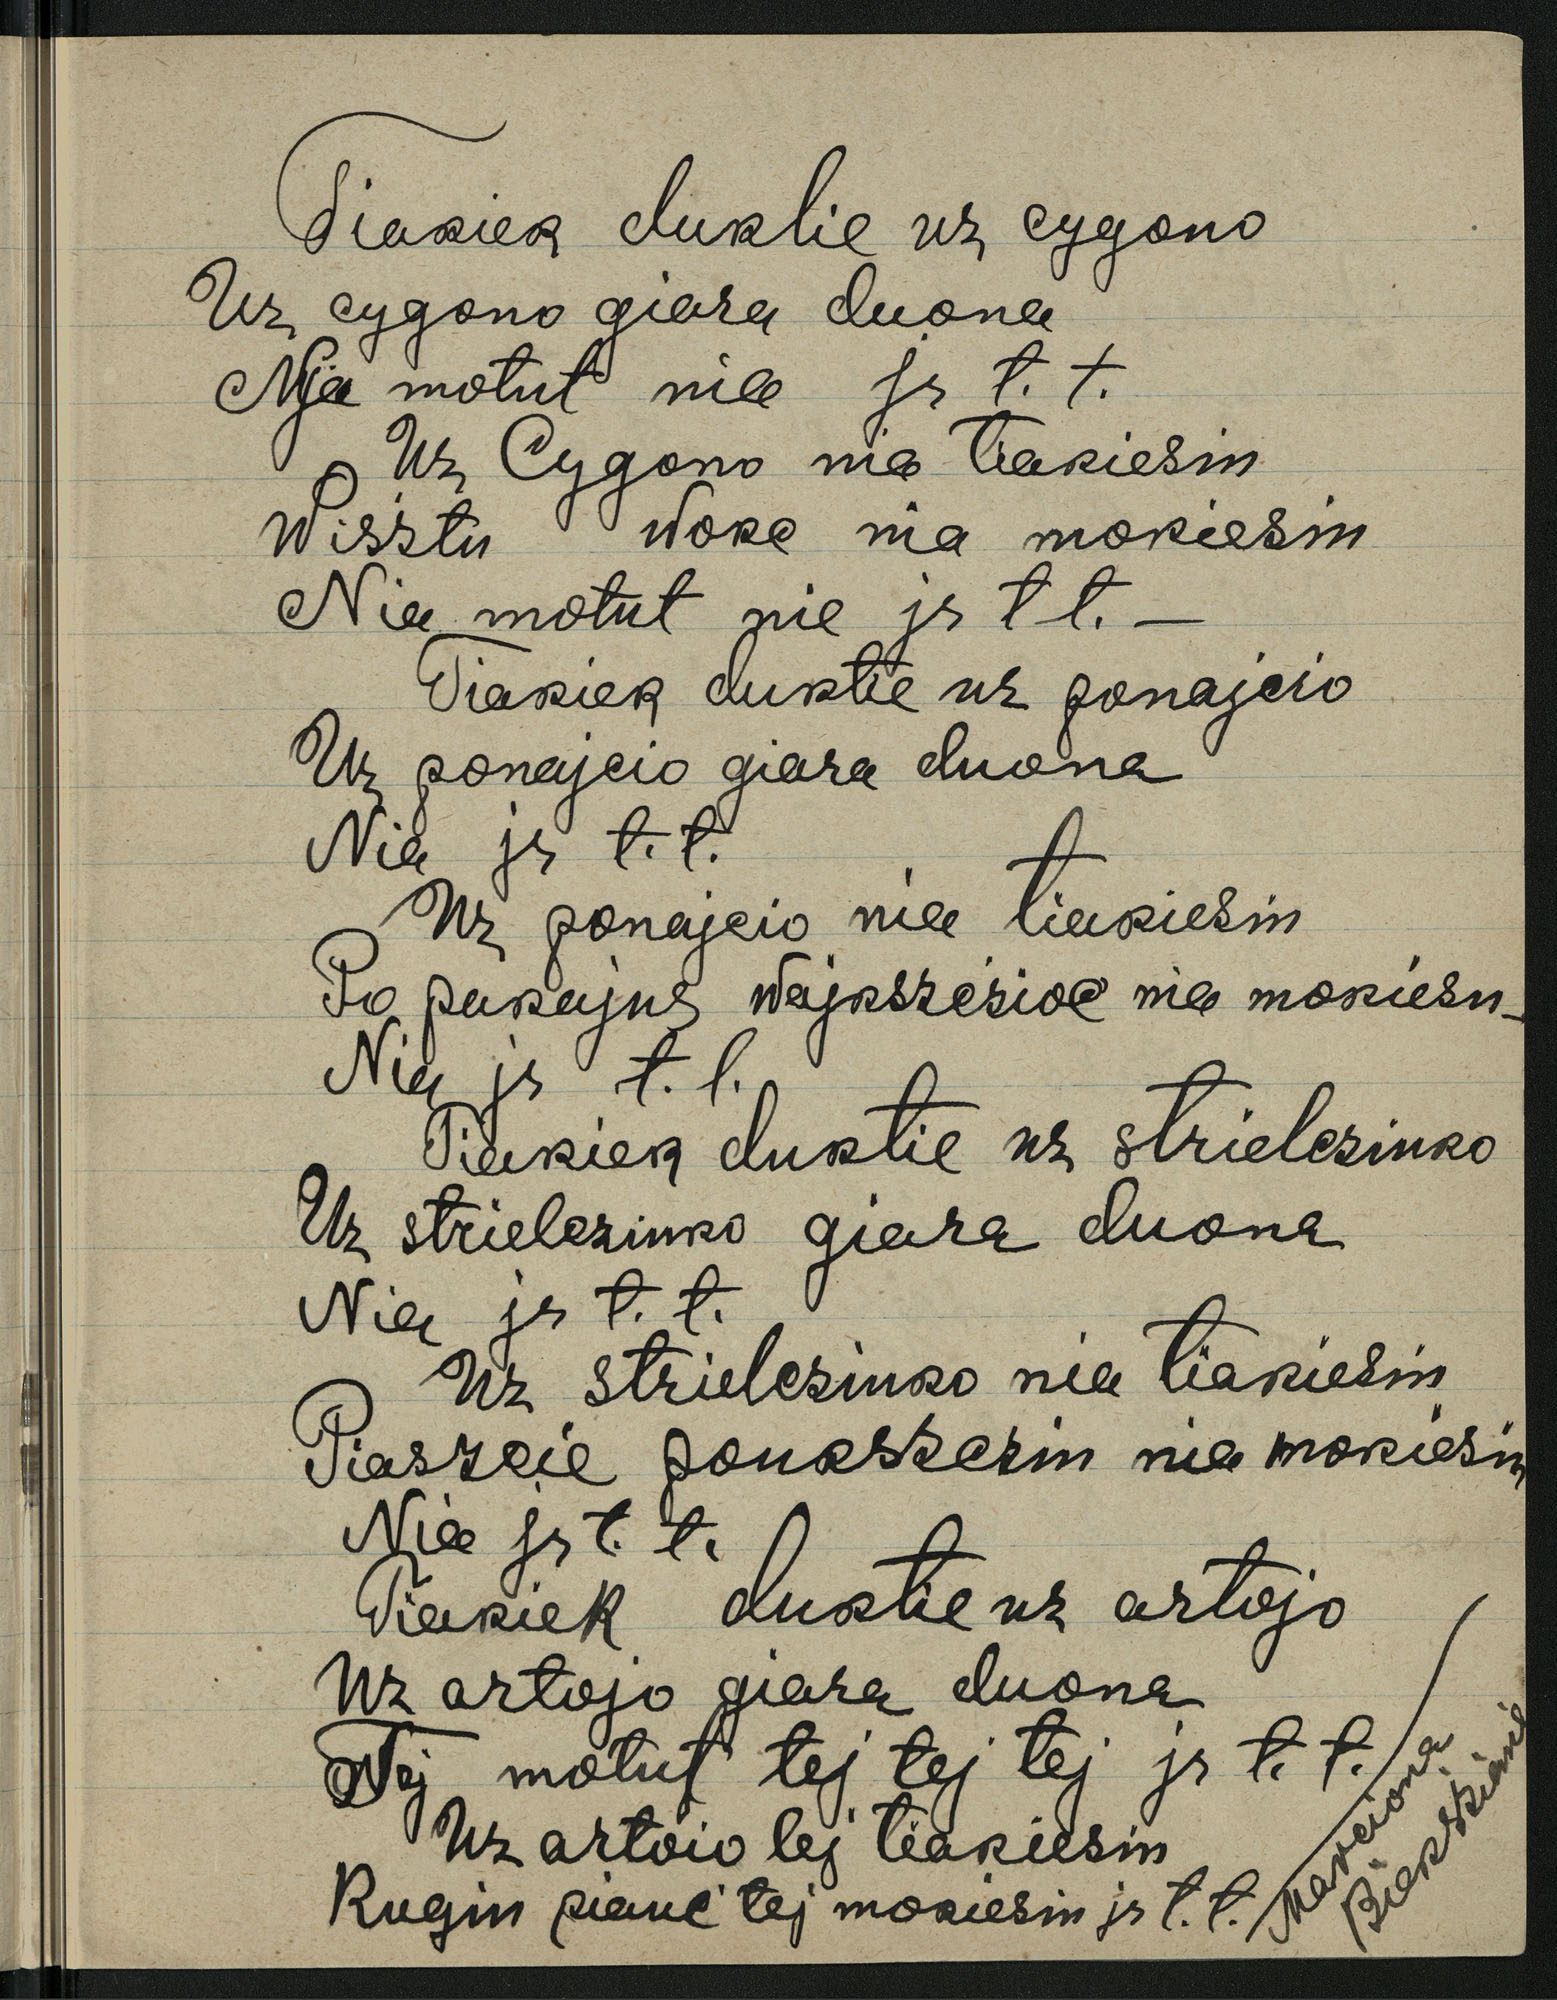 Tiakiek duktie uz cygono
Uz cygono giara duona
Nia motut nia jr t. t.
Uz Cygono nia tiakiesin
Wisztu wokc nia mokiesin
Nia motut nie jr t t. —
Tiakiek duktie uz ponajcio
Uz ponajcio giara duona
Nia jr t. t.
Uz ponajcio nia tiakiesin
Po pakajus wajkszczioc nia mokiesn_
Nia jr t. t.
Tiakiek duktie uz strielczinko
Uz strielczinko giara duona
Nia jr t. t.
Uz strielczinko nia tiakiesin
Piaszcie poukszczin nia mokiesin
Nia jr t. t.
Tiakiek duktie uz artojo
Uz artojo giara duona
Tej motut tej tej tej jr t. t.
Uz artoio tej tiakiesin
Rugin piauć tej mokiesin jr t. t.
Marciona